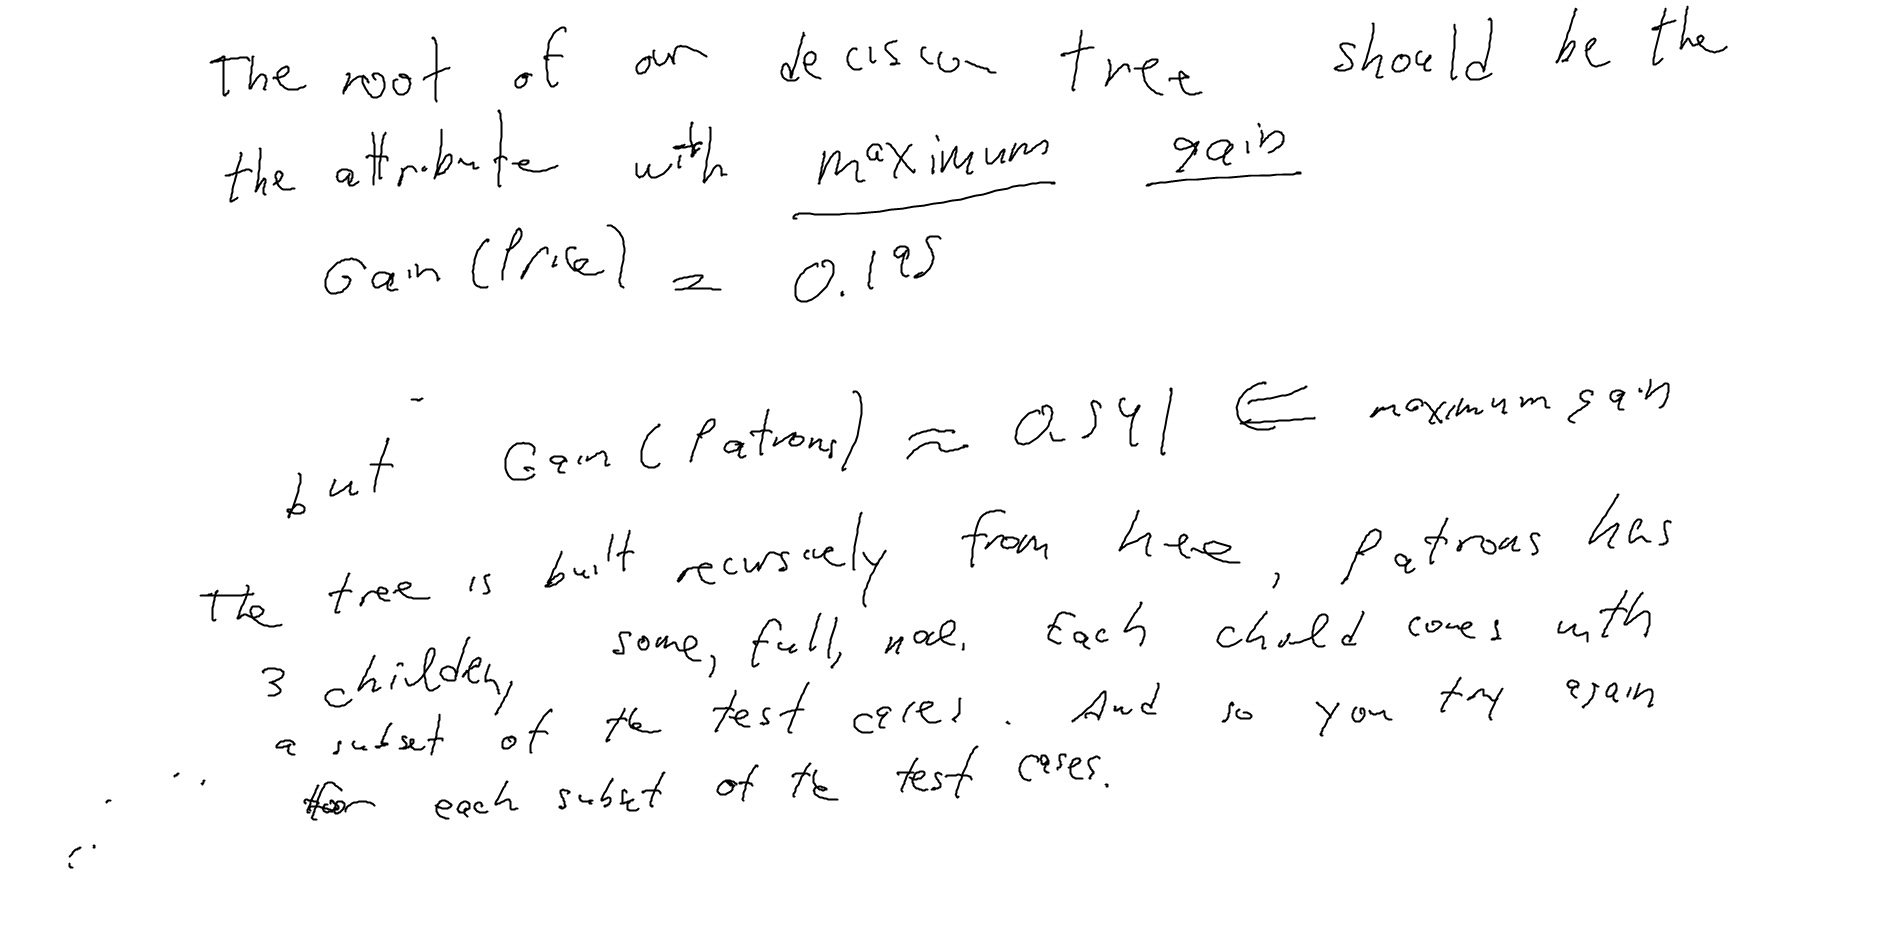 The root of our decision tree should be the
the attribute with maximum gain
Gain (Price) = 0.195
but Gain (Patrons) ≈ 0.541 ⇐ maximum gain
The tree is built recursively from here, Patrons has
3 children, some, full, none. Each child comes with
a subset of the test cases. And so you try again
for each subset of the test cases.